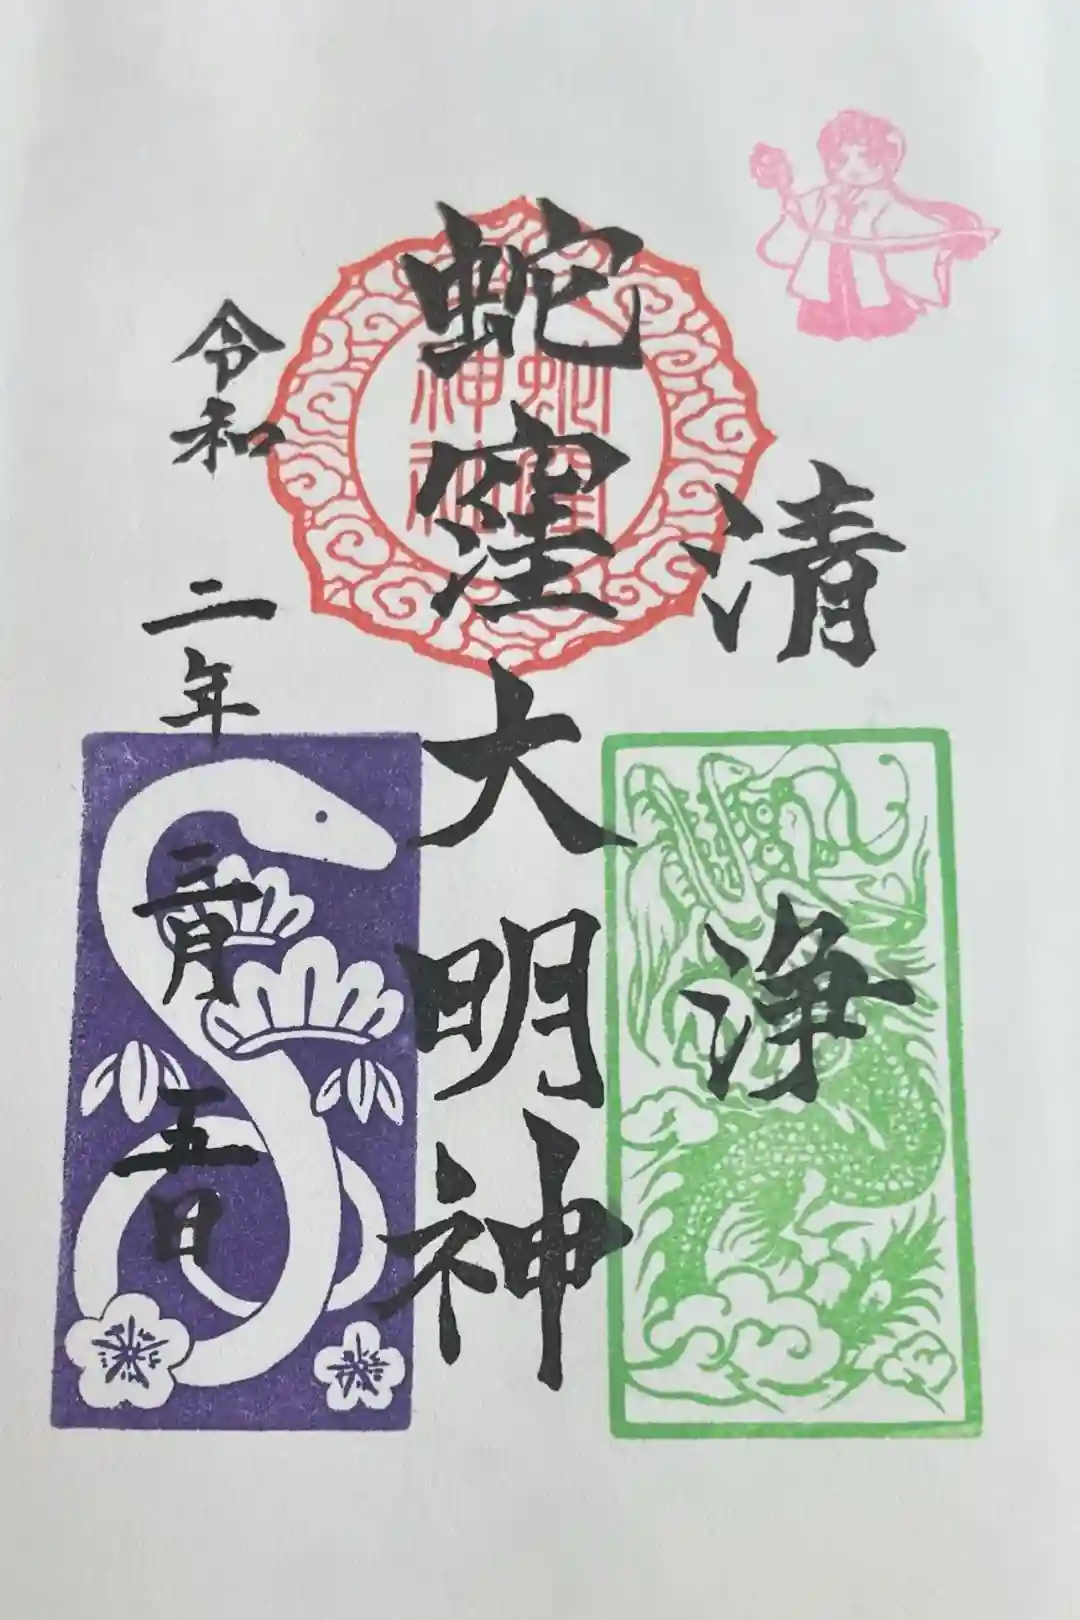 清浄
蛇窪大明神
令和二年三月五日
蛇窪
神社